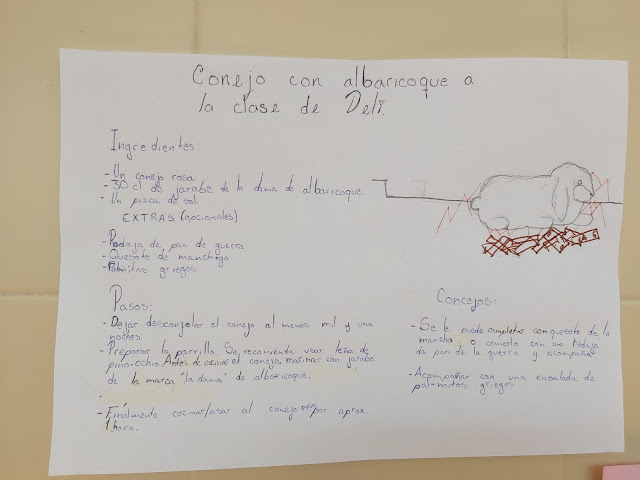 Conejo con albaricoque a
la clase de Deli.
Ingredientes:
- Un conejo rosa
- 30 cl de jarabe de la dama de albaricoque.
- Un pizca de sal.
EXTRAS (opcionales)
- Rodaja de pan de guerra
- Quesote de manchego
- Palmitos griegos
Pasos:
- Dejar descongelar el conejo al menos mil y una
noches.
- Preparar la parrilla. Se recomienda usar leña de
pino-cchio. Antes de cocinar el conejo, marinar con jarabe
de la marca "la dama" de albaricoque.
- Finalmente cocinar/asar al conejo por aprox.
1 hora.
Concejos:
- Se le puede completar con quesote de la
mancha, o comerlo con una rodaja
de pan de la guerra y acompañar
- Acompañar con una ensalada de
pal-mitos griegos.